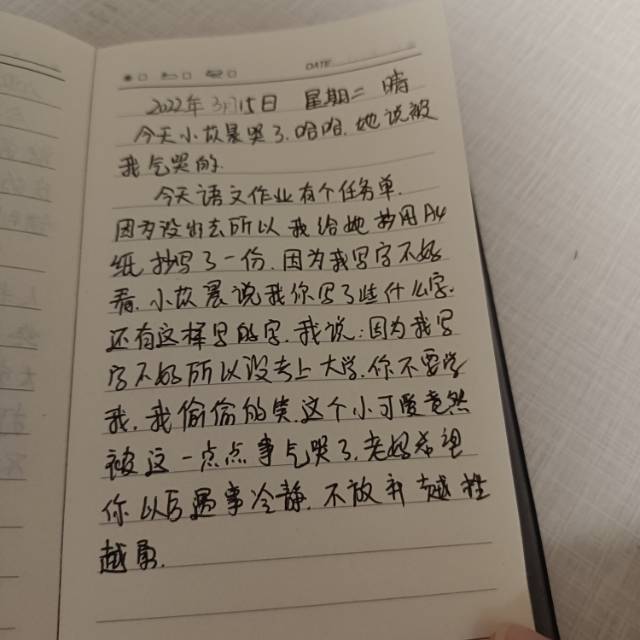 DATE
2022年3月15日 星期二 晴
今天小故晨哭了.哈哈.她说被
我气哭的.
今天语文作业有个任务单.
因为没出去所以我给她 用A4
纸抄写了一份.因为我写字不好
看.小故晨说我你写了些什么字.
还有这样写的字.我说:因为我写
字不好所以没考上大学.你不要学
我.我偷偷的笑.这个小可爱竟然
被这一点点事气哭了.老妈希望
你以后遇事冷静.不放弃越挫
越勇.